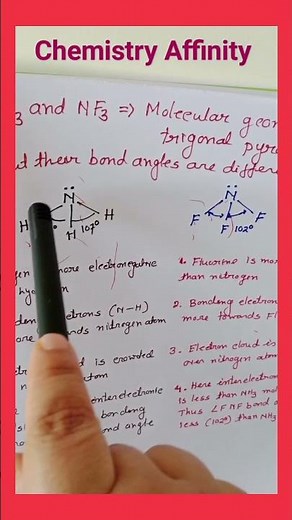 Chemistry Affinity
3 and NF3 => Molecular geom
trigonal pyra
ut their bond angles are differe
N
H H H
107°
N
F F F
102°
gen more electronegative
hydrogen
electrons (N-H)
ards nitrogen atom
is crowded
atom
interelectronic
bonding
ond angle
1. Fluorine is mor
than nitrogen
2. Bonding electron
more towards Fl
3. Electron cloud is
over nitrogen atom
4. Here interelectron
is less than NH3 mol
Thus ∠FNF bond a
less (102°) than NH3